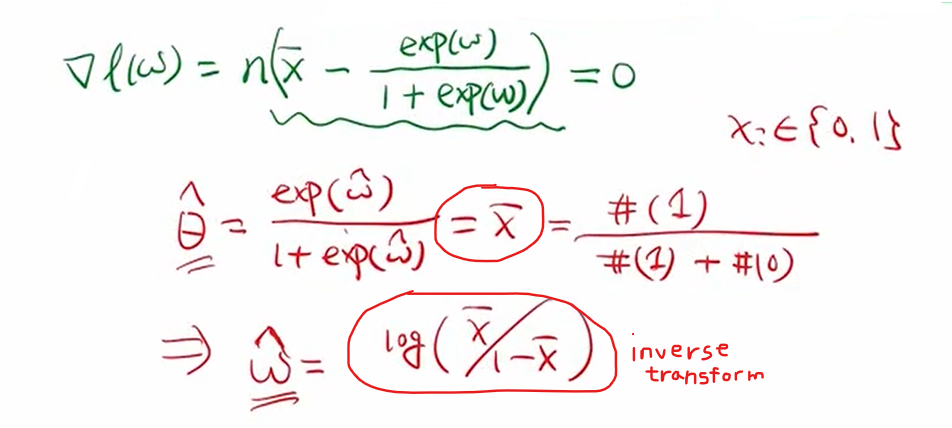 ∇ℓ(ω) = n(x̄ − exp(ω) / 1 + exp(ω)) = 0
xᵢ ∈ {0, 1}
θ̂ = exp(ω̂) / 1 + exp(ω̂) = x̄ = #(1) / #(1) + #(0)
⇒ ω̂ = log(x̄ / 1 − x̄) inverse
transform